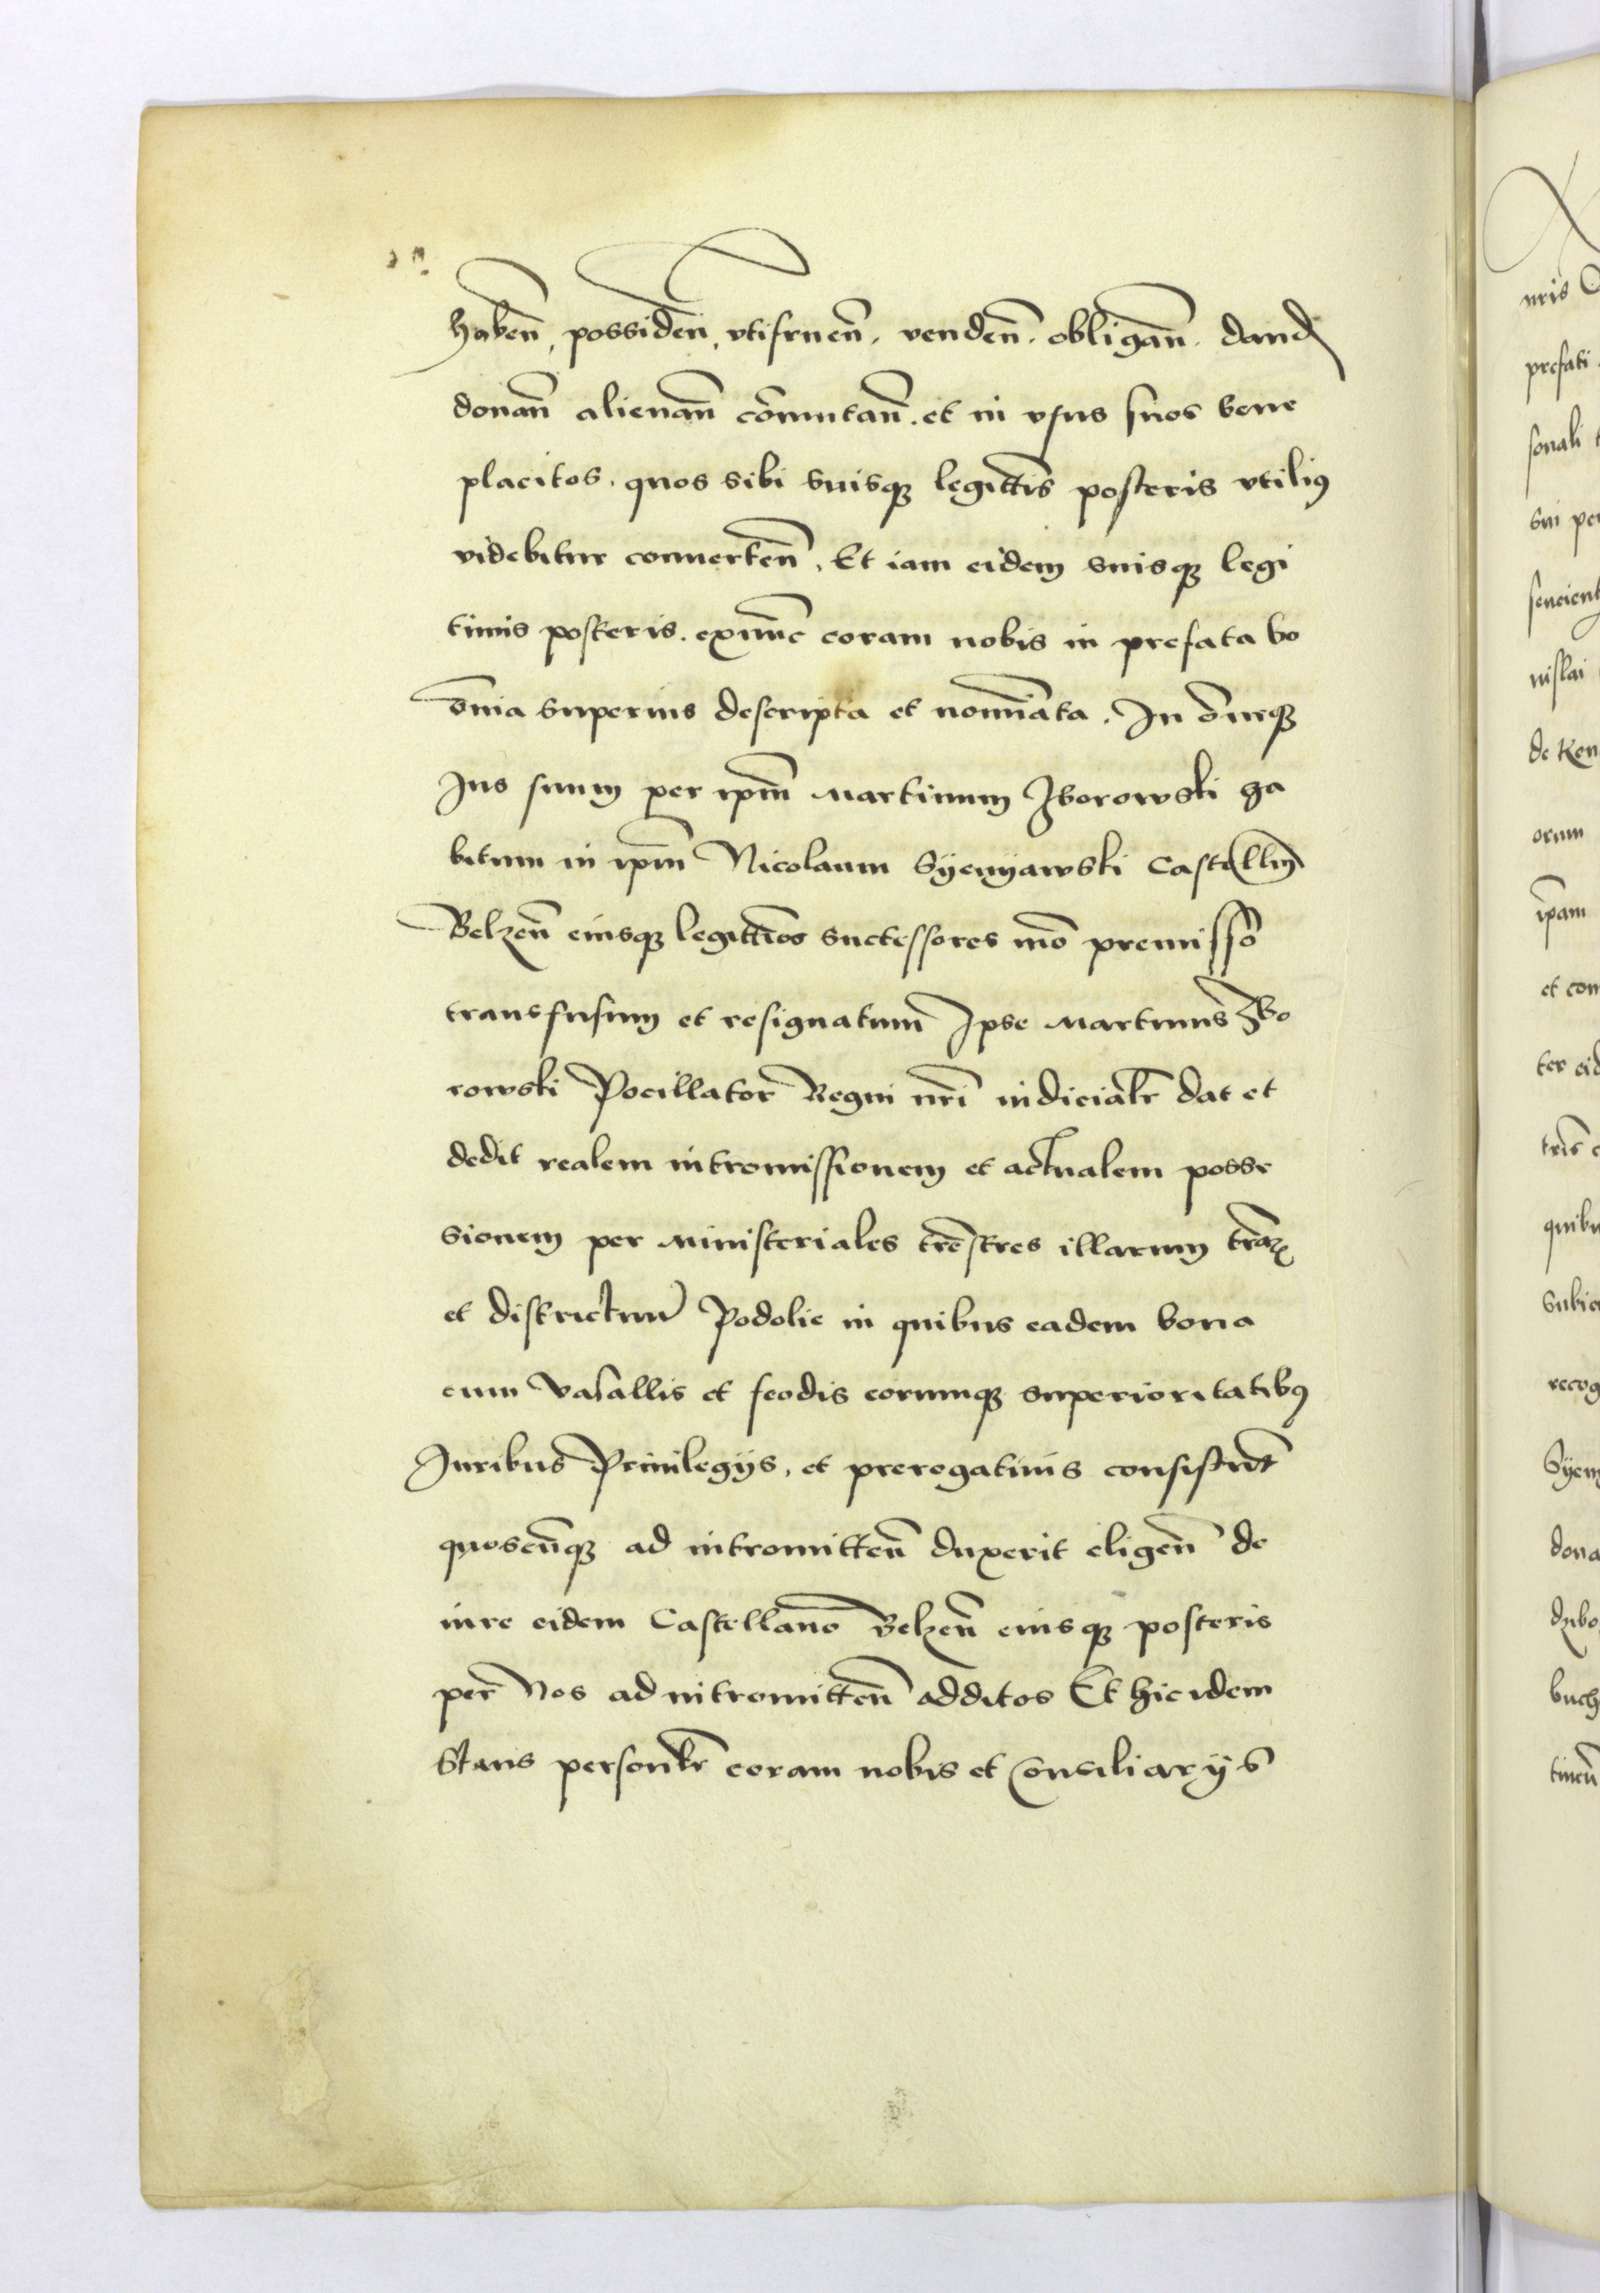 haben̄, possiden̄, vtifruen̄. venden̄. obligan̄. dand
donan̄ alienan̄ com̄utan̄. et in vsus suos bene
placitos. quos sibi suisq legittīs posteris vtiliꝰ
videbitur conuerten̄. Et iam eidem suisq legi
timis posteris. exnūc coram nobis in prefata bo
om̄ia superius descripta et nomīata. In om̄eq
Jus suum per ip̄m Martinum Zborowski ha
bitum in ip̄m Nicolaum Syenyawski Castellm̄
Belzen̄ eiusq legittīos successores mō premisso
transfusum et resignatum Ipse Martinus Zbo
rowski Pocillator Regni nr̄i iudicialr̄ dat et
dedit realem intromissionem et actualem posse
sionem per Ministeriales trēstres illarum trāꝝ
et districtuū Podolie in quibus eadem bona
cum Vasallis et feodis eorumq superioritatibꝰ
Juribus Priuilegijs, et prerogatiuis consistūt
quoscūq ad intromitten̄ duxerit eligen̄ de
iure eidem Castellano Belzen̄ eiusq posteris
per Nos ad intromitten̄ additos Et hic idem
Stans personlr̄ coram nobis et Consiliarijs
nris
prefati
sonali
sui per
sencient
nislai
de Ken
orum
ip̄am
et com
ter eid
tris
quibu
Subie
recog
Syeny
dona
buch
tinen̄